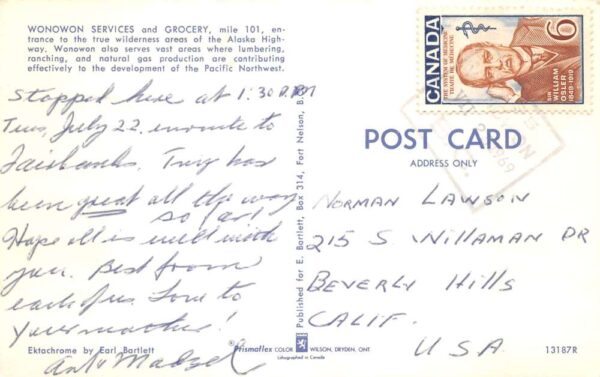 WONOWON SERVICES and GROCERY, mile 101, en-
trance to the true wilderness areas of the Alaska High-
way. Wonowon also serves vast areas where lumbering,
ranching, and natural gas production are contributing
effectively to the development of the Pacific Northwest.
Stopped here at 1:30 P.M
Tues, July 22 enroute to
Fairbanks. Trip has
been great all the way
so far!
Hope all is well with
you. Best from
each of us. Love to
your mother!
Ektachrome by Earl Bartlett
Published for E. Bartlett, Box 314, Fort Nelson, B.C.
Prismaflex COLOR WILSON, DRYDEN, ONT.
Lithographed in Canada
CANADA
THE SYSTEM OF MEDICINE
TRAITÉ DE MÉDECINE
6
SIR WILLIAM OSLER
1849-1919
POST CARD
ADDRESS ONLY
NORMAN LAWSON
215 S WILLAMAN DR
BEVERLY HILLS
CALIF.
USA
13187R